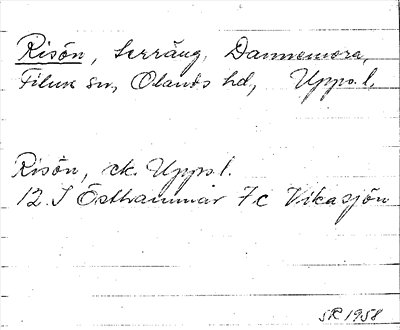 Risön, terräng, Dannemora,
Films sn, Olands hd, Upps. l.
Risön, ek. Upps l.
12. I Östhammar 7c Vikasjön
SR 1958